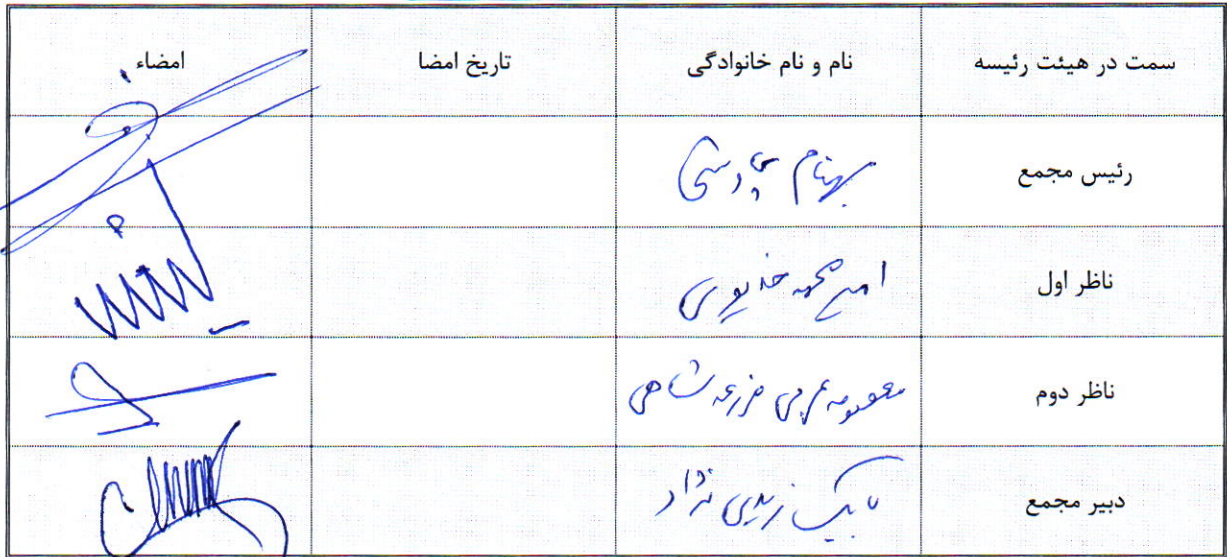 سمت در هیئت رئیسه نام و نام خانوادگی تاریخ امضا امضاء
رئیس مجمع بهنام
ناظر اول امیر محمد خدیوی
ناظر دوم معصومه مزرعه شاهی
دبیر مجمع بابک زیدی نژاد